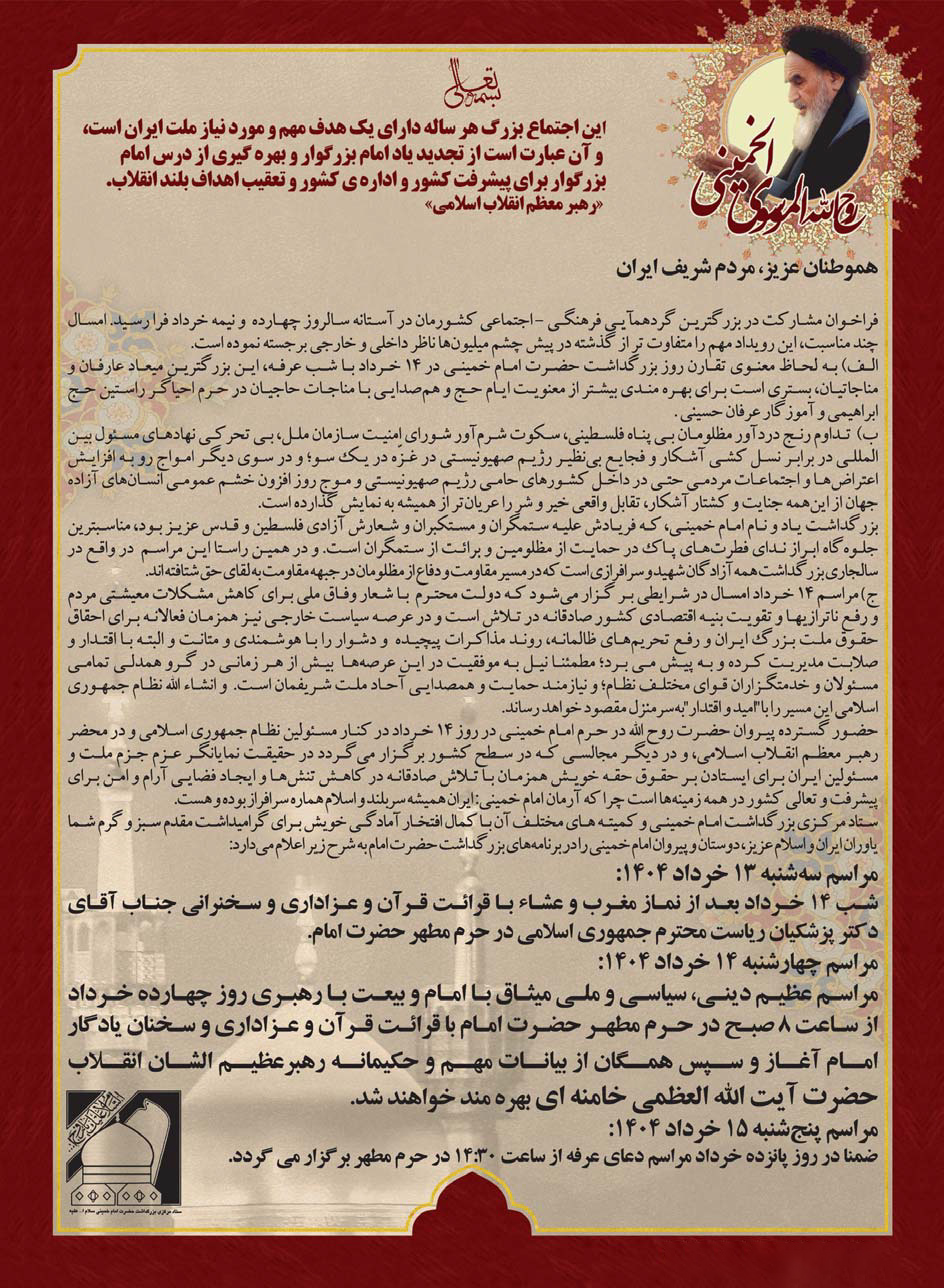 بسمه تعالی
این اجتماع بزرگ هر ساله دارای یک هدف مهم و مورد نیاز ملت ایران است،
و آن عبارت است از تجدید یاد امام بزرگوار و بهره گیری از درس امام
بزرگوار برای پیشرفت کشور و اداره ی کشور و تعقیب اهداف بلند انقلاب.
«رهبر معظم انقلاب اسلامی»
روح الله الموسوی الخمینی
هموطنان عزیز، مردم شریف ایران
فراخوان مشارکت در بزرگترین گردهمآیی فرهنگی -اجتماعی کشورمان در آستانه سالروز چهارده و نیمه خرداد فرا رسید. امسال
چند مناسبت، این رویداد مهم را متفاوت تر از گذشته در پیش چشم میلیون‌ها ناظر داخلی و خارجی برجسته نموده است.
الف) به لحاظ معنوی تقارن روز بزرگداشت حضرت امام خمینی در ۱۴ خرداد با شب عرفه، این بزرگترین میعاد عارفان و
مناجاتیان، بستری است برای بهره مندی بیشتر از معنویت ایام حج و هم‌صدایی با مناجات حاجیان در حرم احیاگر راستین حج
ابراهیمی و آموزگار عرفان حسینی .
ب) تداوم رنج دردآور مظلومان بی پناه فلسطینی، سکوت شرم‌آور شورای امنیت سازمان ملل، بی تحرکی نهادهای مسئول بین
المللی در برابر نسل کشی آشکار و فجایع بی‌نظیر رژیم صهیونیستی در غزه در یک سو؛ و در سوی دیگر امواج رو به افزایش
اعتراض‌ها و اجتماعات مردمی حتی در داخل کشورهای حامی رژیم صهیونیستی و موج روز افزون خشم عمومی انسان‌های آزاده
جهان از این‌همه جنایت و کشتار آشکار، تقابل واقعی خیر و شر را عریان‌تر از همیشه به نمایش گذارده است.
بزرگداشت یاد و نام امام خمینی، که فریادش علیه ستمگران و مستکبران و شعارش آزادی فلسطین و قدس عزیز بود، مناسبترین
جلوه گاه ابراز ندای فطرت‌های پاک در حمایت از مظلومین و برائت از ستمگران است. و در همین راستا این مراسم در واقع در
سالجاری بزرگداشت همه آزادگان شهید و سرافرازی است که در مسیر مقاومت و دفاع از مظلومان در جبهه مقاومت به لقای حق شتافته‌اند.
ج) مراسم ۱۴ خرداد امسال در شرایطی برگزار می‌شود که دولت محترم با شعار وفاق ملی برای کاهش مشکلات معیشتی مردم
و رفع ناترازیها و تقویت بنیه اقتصادی کشور صادقانه در تلاش است و در عرصه سیاست خارجی نیز همزمان فعالانه برای احقاق
حقوق ملت بزرگ ایران و رفع تحریم‌های ظالمانه، روند مذاکرات پیچیده و دشوار را با هوشمندی و متانت و البته با اقتدار و
صلابت مدیریت کرده و به پیش می برد؛ مطمئنا نیل به موفقیت در این عرصه‌ها بیش از هر زمانی در گرو همدلی تمامی
مسئولان و خدمتگزاران قوای مختلف نظام؛ و نیازمند حمایت و همصدایی آحاد ملت شریفمان است. و انشاء الله نظام جمهوری
اسلامی این مسیر را با"امید و اقتدار"به سرمنزل مقصود خواهد رساند.
حضور گسترده پیروان حضرت روح الله در حرم امام خمینی در روز ۱۴ خرداد در کنار مسئولین نظام جمهوری اسلامی و در محضر
رهبر معظم انقلاب اسلامی، و در دیگر مجالسی که در سطح کشور برگزار می‌گردد در حقیقت نمایانگر عزم جزم ملت و
مسئولین ایران برای ایستادن بر حقوق حقه خویش همزمان با تلاش صادقانه در کاهش تنش‌ها و ایجاد فضایی آرام و امن برای
پیشرفت و تعالی کشور در همه زمینه‌ها است چرا که آرمان امام خمینی: ایران همیشه سربلند و اسلام هماره سرافراز بوده و هست.
ستاد مرکزی بزرگداشت امام خمینی و کمیته های مختلف آن با کمال افتخار آمادگی خویش برای گرامیداشت مقدم سبز و گرم شما
یاوران ایران و اسلام عزیز، دوستان و پیروان امام خمینی را در برنامه‌های بزرگداشت حضرت امام به شرح زیر اعلام می‌دارد:
مراسم سه‌شنبه ۱۳ خرداد ۱۴۰۴:
شب ۱۴ خرداد بعد از نماز مغرب و عشاء با قرائت قرآن و عزاداری و سخنرانی جناب آقای
دکتر پزشکیان ریاست محترم جمهوری اسلامی در حرم مطهر حضرت امام.
مراسم چهارشنبه ۱۴ خرداد ۱۴۰۴:
مراسم عظیم دینی، سیاسی و ملی میثاق با امام و بیعت با رهبری روز چهارده خرداد
از ساعت ۸ صبح در حرم مطهر حضرت امام با قرائت قرآن و عزاداری و سخنان یادگار
امام آغاز و سپس همگان از بیانات مهم و حکیمانه رهبرعظیم الشان انقلاب
حضرت آیت الله العظمی خامنه ای بهره مند خواهند شد.
مراسم پنج‌شنبه ۱۵ خرداد ۱۴۰۴:
ضمنا در روز پانزده خرداد مراسم دعای عرفه از ساعت ۱۴:۳۰ در حرم مطهر برگزار می گردد.
ستاد مرکزی بزرگداشت حضرت امام خمینی سلام ا... علیه